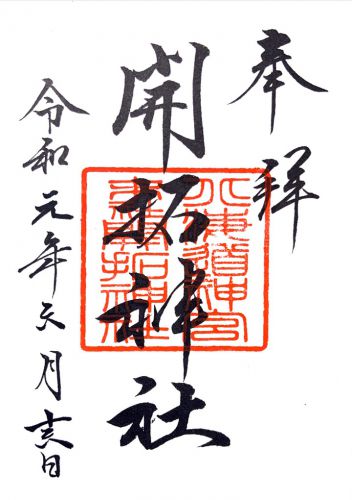 奉拝
開拓神社
令和元年六月十六日
北海道神宮
開拓神社